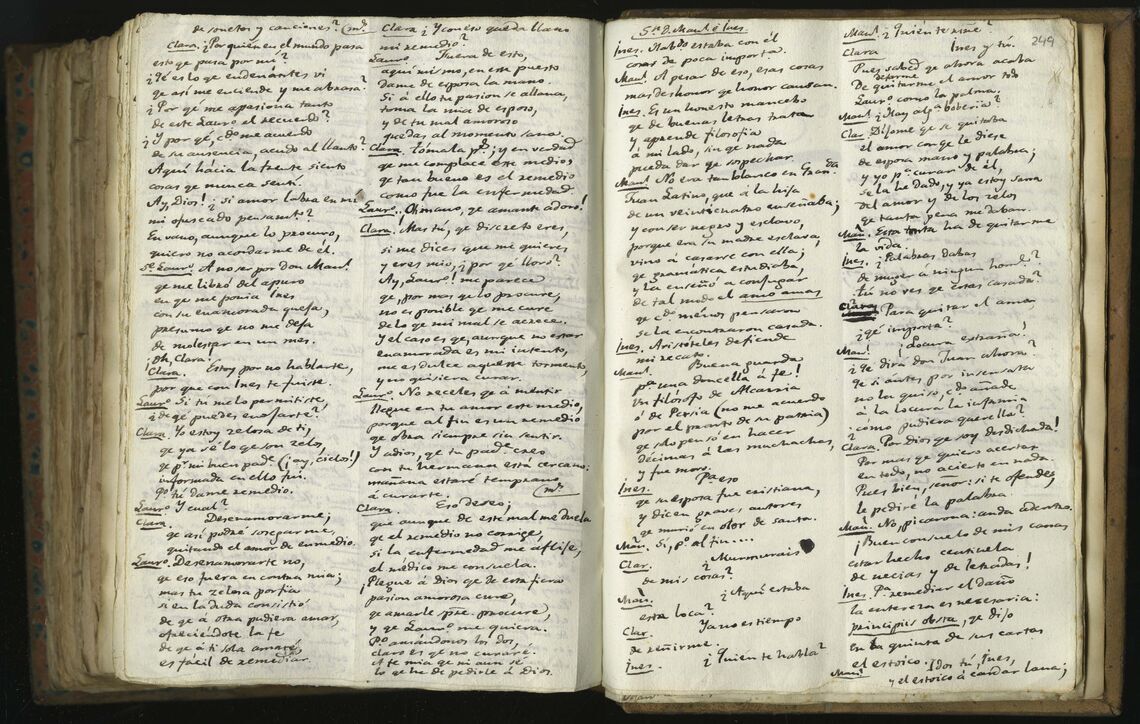 de sonetos y canciones? (mr.
Clara. ¿Por quien en el mundo pasa
esto qe pasa por mí?
¿Qé es lo qe endenantes vi
qe así me enciende y me abrasa?
¿Por qé me apasiona tanto
de este Lauro el recuerdo?
¿Y por qé, cdo me acuerdo
de su ausencia, acudo al llanto?
Aquí hacia la frente siento
cosas qe nunca sentí.
Ay, Dios! ¿Si amor labra en mí
mi ofuscado pensamto?
En vano, aunque lo procuro,
quiero no acordarme de él.
Sn. Lauro. A no ser por Don Manl.
qe me libró del apuro
en qe me ponia Ines
con su enamorada quefa,
presumo qe no me defa
de molestar en un mes.
Oh, Clara!
Clara. Estoy por no hablarte,
por que con Ines te fuiste.
Lauro Si tu me lo permitiste,
¿de qé puedes enofarte?
Clara. Yo estoy zelosa de tí,
qe ya sé lo qe son zelos,
qe pr. mi buen pade. (¡ay, cielos!)
informada en ello fui.
Po. tú dame remedio.
Lauro Y cual?
Clara. Desenamorarme;
qe así podré sosegarme,
quitando el amor de enmedio.
Lauro. Desenamorarte no,
qe eso fuera en contra mia;
mas tu zelosa porfia
si en la duda consistió
de qe á otra pudiera amar,
ofreciéndote la fe
de qe á tí sola amaré,
es facil de remediar.
Clara ¿Y con eso queda llano
mi remedio?
Lauro Fuera de esto,
aqui mismo, en este puesto
Dame de esposa la mano.
Si á ello tu pasion se allana,
toma la mia de esposo,
y de tu mal amoroso
quedas al momento sana.
Clara. Tómala ps.; y en verdad
qe me complace este medio,
qe tan bueno es el remedio
como fue la enfermedad.
Lauro. Oh mano, qe amante adoro!
Clara! Mas tú, qe discreto eres,
si me dices que mi quieres
y eres mio, ¿por qé lloro?
Ay, Lauro! me parece
qe, por mas qe lo procure,
no es posible qe me cure
de lo qe mi mal se acrece.
Y el caso es qe, aunque no estar
enamorada es mi intento,
me es dulce aqueste tormento,
y no quisiera curar.
Lauro. No receles qe á mentir
llegue en tu amor este medio,
porque al fin es un remedio
qe obra siempre sin sentir.
Y adios, qe tu pade. creo
con tu hermana está cercano:
mañana estaré temprano
á curarte. (mr.
Clara. Eso deseo,
que aunque de este mal me duela
qe el remedio no corrige,
si la enfermedad me aflife,
el medico me consuela.
¡Plegue á Dios que de esta fiera
pasion amorosa cure,
qe amarle spre. procure,
y qe Lauro me quiera.
Po. amándonos los dos,
claro es qe no curaré.
A fe mia qe ni aun sé
lo qe he de pedirle á Dios.
Sn. D. Manl. é Ines.
Ines. Hablo estaba con él
cosas de poca import.a
Manl. A pesar de eso, esas cosas
mas deshonor qe honor causan.
Ines. Es un honesto mancebo
qe de buenas letras trata
y aprende filosofia
á mi lado, sin qe nada
pueda dar qe sospechar.
Manl. No era tan blanco en Granda.
Juan Latino, que á la hija
de un veinticuatro enseñaba;
y con ser negro y esclavo,
porque era su madre esclava,
vino á casarse con ella;
qe gramática estudiaba,
y la enseñó a confugar
de tal modo el amo amas
qe cdo. ménos pensaron
se la encontraron casada.
Ines. Aristóteles defiende
mi recato.
Manl. Buena guarda
pa. una doncella á fe!
Un filósofo de Alcarria
ó de Persia (no me acuerdo
por el pronto de su patria)
qe solo pensó en hacer
décimas á las muchachas,
y fue moro.
Ines. Pa. eso
qe su esposa fue cristiana,
y dicen graves autores
qe murió en olor de santa.
Man. Si, po. al fin....
Clar. ¿Murmurais
de mis cosas?
Man. ¿Aquí estaba
esta loca?
Clar. Ya no es tiempo
de reñirme.
Ines. ¿Quien te habla?
249
Manl. ¿Quién te riñe?
Clara Ines y tú.
Pues sabed qe ahora acaba
de quitarme el amor todo
Lauro como la palma.
Manl. ¿Hay alga. bobería?
Clar. Difome qe se quitaba
el amor con qe le diese
de esposa mano y palabra;
y yo pa. curar de él,
se la he dado, y ya estoy sana
del amor y de los zelos
qe tanta pena me daban.
Man. Esta tonta ha de quitarme
la vida.
Ines. ¿Palabras dabas
de muger á ningun homb.e?
¿tú no ves qe eras casada?
Clara Para quitar el amor,
¿qé importa?
Man. ¡Locura extraña!
¿Qe dirá don Juan ahora?
Qe si antes por insensata
no la quiso, cdo. añade
á la locura la infamia
¿cómo pudiera quererlla?
Clara. Por dios qe soy desdichada!
Por mas qe quiero acertar
en todo, no acierto en nada.
Pues bien, señor: si te ofendes,
le pediré la palabra.
Man. No, picarona: anda adentro.
¡Buen consuelo de mis canas
estar hecho centinela
de necias y de letradas!
Ines. Pa. remediar el daño
la entereza es necesaria:
principiis obsta, qe difo
en la quinta de sus cartas
el estoico.
Manl. Idos tú, Ines,
y el estoico á cardar lana;